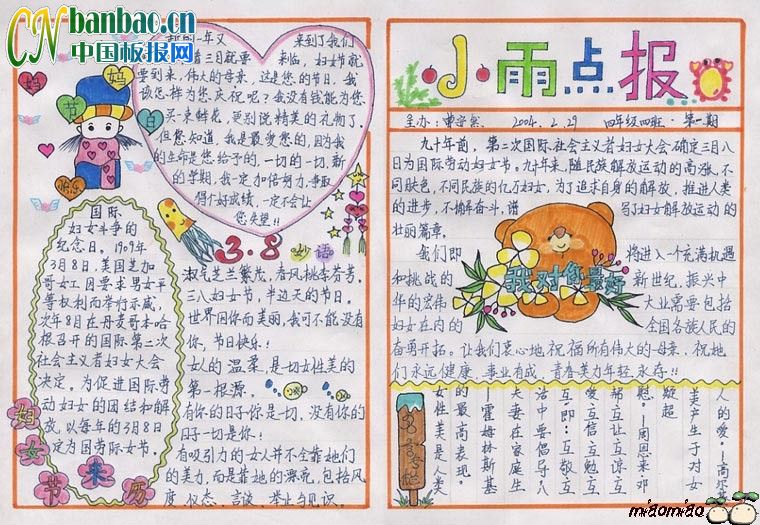 CN banbao.cn
中国板报网
妈
妈
节
日
快乐
新的一年又 来到了我们
着三月就要 来临，妇女节就
要到来，伟大的母亲，这是您的节日。我
该怎样为您庆祝呢？我没有钱能为您
买一束鲜花，更别说精美的礼物了，
但您知道，我是最爱您的，因为我
的生命是您给予的，一切的一切，新
的学期，我一定加倍努力，争取
得个好成绩，一定不会让
您失望!!
国际
妇女斗争的
纪念日。1909年
3月8日，美国芝加
哥女工因要求男女平
等权利而举行示威，
次年8月在丹麦哥本哈
根召开的国际第二次
社会主义者妇女大会
决定。为促进国际劳
动妇女的团结和解
放，以每年的3月8日
定为国劳际女节。
妇
女
节
来
历
3.8 妙语
淑气芝兰繁茂，春风桃李芬芳。
三八妇女节，半边天的节日，
世界因你而美丽，我可不能没有
你，节日快乐！
女人的温柔，是一切女性美的
第一根源。
有你的日子你是一切，没有你的
日子一切是你！
有吸引力的女人并不全靠她们
的美力，而是靠她的漂亮，包括风
度、仪态、言谈、举止与见识。
小雨点报
主办： 2004.2.29 四年级四班 第一期
九十年前，第二次国际社会主义者妇女大会确定三月八
日为国际劳动妇女节。九十年来，随民族解放运动的高涨，不
同肤色，不同民族的亿万妇女，为了追求自身的解放，推进人类
的进步，不懈奋斗，谱 写了妇女解放运动的
壮丽篇章。
我们即 将进入一个充满机遇
和挑战的 新世纪，振兴中
华的宏伟 大业需要包括
妇女在内的 全国各族人民的
奋勇开拓。让我们衷心地祝福所有伟大的母亲，祝她
们永远健康，事业有成，青春美力年轻永存!!
我对您最好
人的爱。—高尔基
美产生于对女
疑超
慰。—周恩来邓颖超
谅互让互
爱互信互
互助互敬
活中要倡导“八
夫妻在家庭生
—霍姆林斯基
的最高表现。
女性美是人类
miaomiao